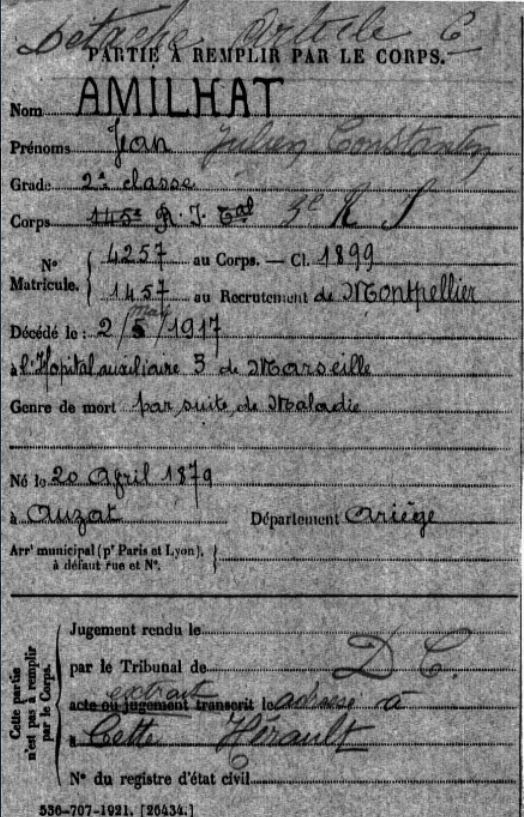 Détaché Article 6
PARTIE À REMPLIR PAR LE CORPS.
Nom AMILHAT
Prénoms Jean Julien Constantin
Grade 2e classe
Corps 145e R. I. Tal 3e R I
N° Matricule. { 4257 au Corps. — Cl. 1899
1457 au Recrutement de Montpellier
mai
Décédé le : 2/5/1917
à l'Hopital auxiliaire 3 de Marseille
Genre de mort par suite de Maladie
Né le 20 Avril 1879
à Auzat Département Ariège
Arrt municipal (pr Paris et Lyon), à défaut rue et N°. }
Cette partie n'est pas à remplir par le Corps. {
Jugement rendu le
par le Tribunal de D C.
extrait
acte ou jugement transcrit le adressé à
à Cette Hérault
N° du registre d'état civil
536-707-1921. [26434.]